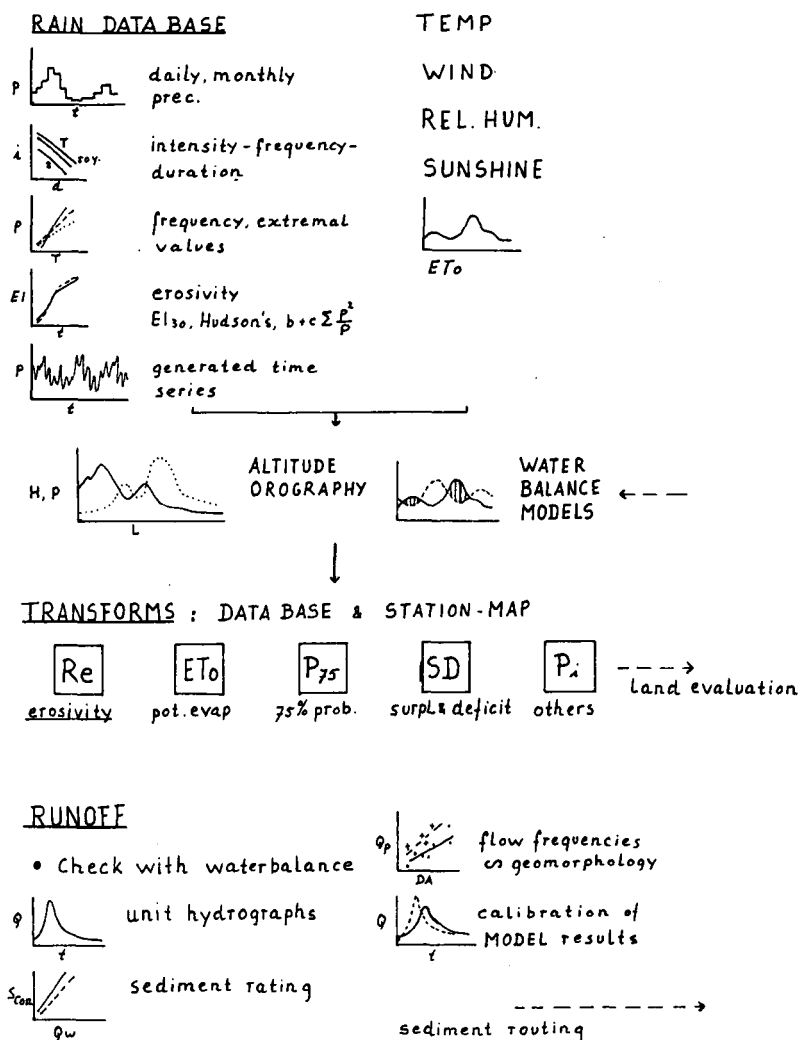 RAIN DATA BASE
P
t
daily, monthly
prec.
i
T
2
50y.
d
intensity-frequency-
duration
P
T
frequency, extremal
values
EI
t
erosivity
EI30, Hudson's, b+c Σ p²/P
P
t
generated time
series
TEMP
WIND
REL. HUM.
SUNSHINE
ETo
H, P
L
ALTITUDE
OROGRAPHY
WATER
BALANCE
MODELS
TRANSFORMS : DATA BASE & STATION-MAP
Re
erosivity
ETo
pot. evap
P75
75% prob.
SD
surpl & deficit
Pi
others
land evaluation
RUNOFF
• Check with waterbalance
Q
t
unit hydrographs
Scon
Qw
sediment rating
Qp
DA
flow frequencies
∽ geomorphology
Q
t
calibration of
MODEL results
sediment routing